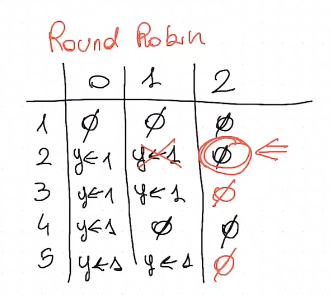 Round Robin
0 1 2
1 ∅ ∅ ∅
2 y←1 y←1 ∅ ⇐
3 y←1 y←1 ∅
4 y←1 ∅ ∅
5 y←1 y←1 ∅